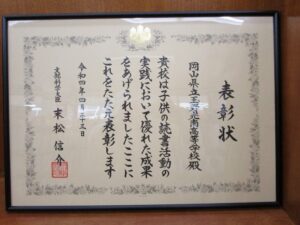 表彰状
岡山県立玉野光南高等学校殿
貴校は子供の読書活動の
実践において優れた成果
をあげられましたここに
これをたたえ表彰します
令和四年四月二十三日
文部科学大臣 末松信介